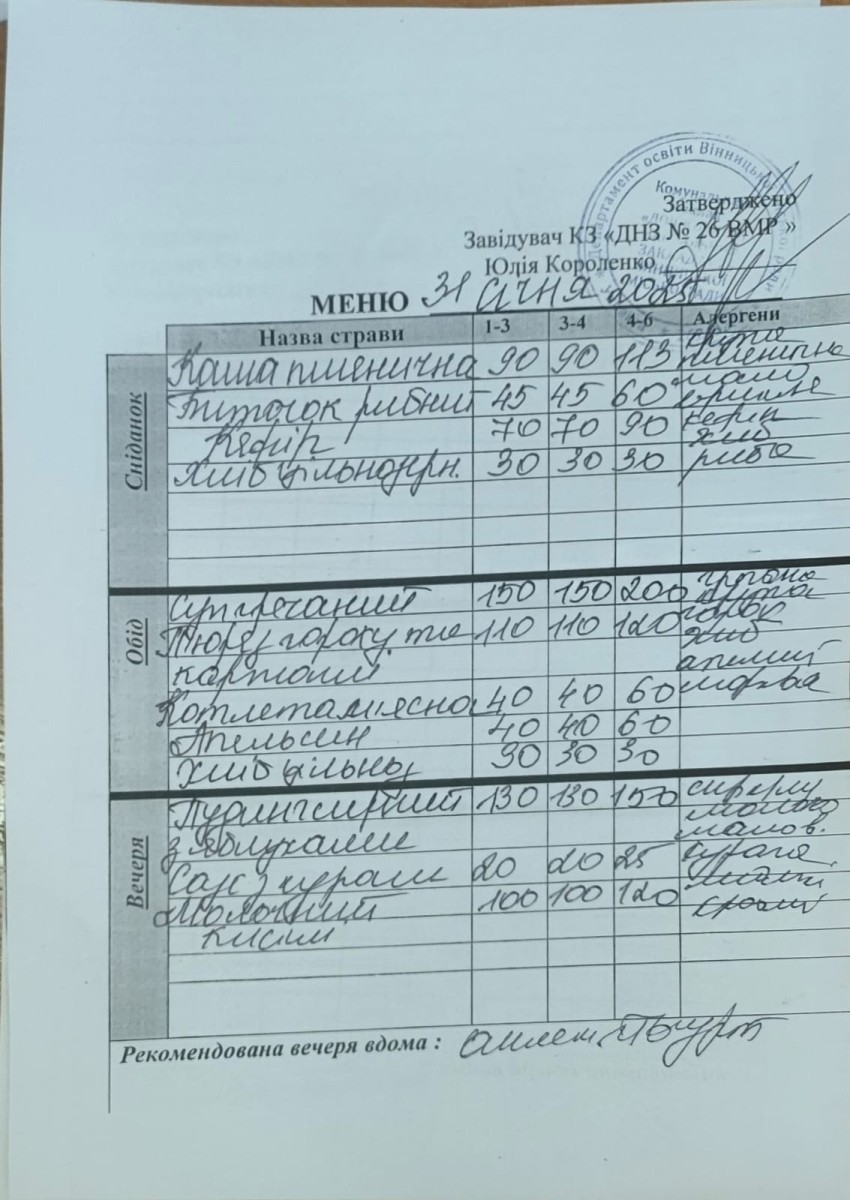 Департамент освіти Вінницької
Комуналь
Затверджено
Завідувач КЗ «ДНЗ № 26 ВМР »
Юлія Короленко
МЕНЮ 31 січня 2025
Назва страви 1-3 3-4 4-6 Алергени
Сніданок
Каша пшенична 90 90 113 пшенична
Биточок рибний 45 45 60 масло
Кефір 70 70 90 кефір
хліб
Хліб цільнозерн. 30 30 30 риба
Обід
Суп гречаний 150 150 200
Пюре з гороху та 110 110 120 горох
хліб
картоплі
Котлета м'ясна 40 40 60 морква
Апельсин 40 40 60
Хліб цільноз 30 30 30
Вечеря
Пудинг сирний 130 130 150
молоко
з яблуками
Соус з кураги 20 20 25 курага
Молочний 100 100 120
кисіль
Рекомендована вечеря вдома : омлет, йогурт